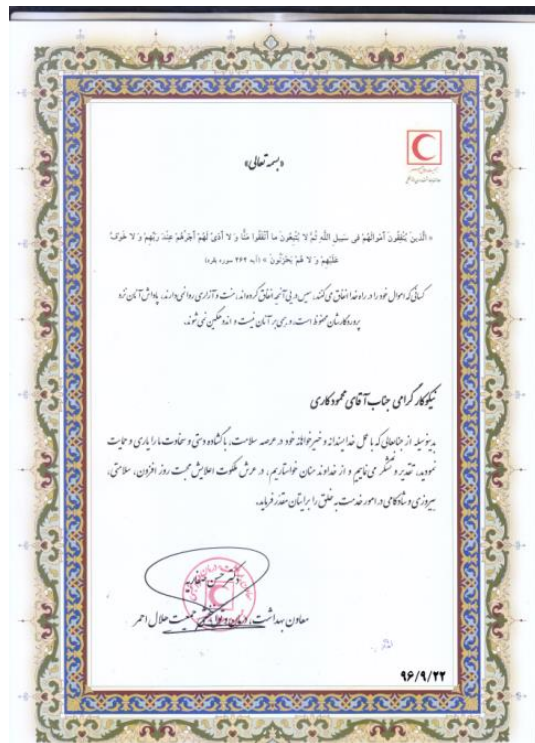 «بسمه تعالی»
« الَّذینَ یُنْفِقُونَ أَمْوالَهُمْ فی سَبیلِ اللَّهِ ثُمَّ لا یُتْبِعُونَ ما أَنْفَقُوا مَنًّا وَ لا أَذىً لَهُمْ أَجْرُهُمْ عِنْدَ رَبِّهِمْ وَ لا خَوْفٌ
عَلَیْهِمْ وَ لا هُمْ یَحْزَنُونَ » (آیه ۲۶۲ سوره بقره)
کسانی که اموال خود را در راه خدا انفاق می کنند، سپس در پی آنچه انفاق کرده اند، منت و آزاری روا نمی دارند، پاداش آنان نزد
پروردگارشان محفوظ است، و بیمی بر آنان نیست و اندوهگین نمی شوند.
نیکوکار گرامی جناب آقای محمود کاری
بدینوسیله از جنابعالی که با عمل خداپسندانه و خیرخواهانه خود در عرصه سلامت، با گشاده دستی و سخاوت ما را یاری و حمایت
نمودید، تقدیر و تشکر می نماییم و از خداوند منان خواستاریم، در عرش ملکوت اعلایش محبت روز افزون، سلامتی،
پیروزی و شادکامی در امور خدمت به خلق را برایتان مقدر فرماید.
دکتر حسن صفاریه
معاون بهداشت، درمان و توانبخشی جمعیت هلال احمر
۹۶/۹/۲۲